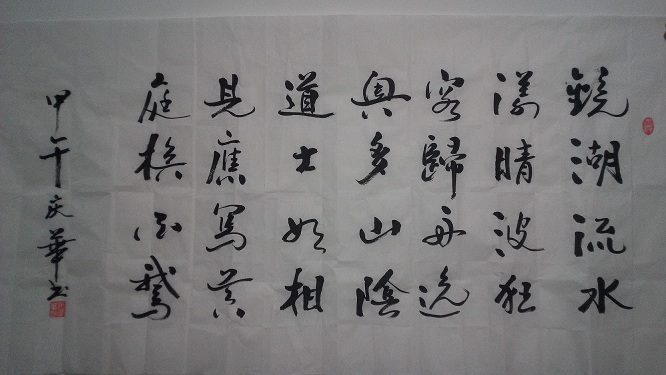 鏡湖流水
漾晴波狂
客歸舟逸
興多山陰
道士如相
見應寫黃
庭換白鵝
甲午庆華书